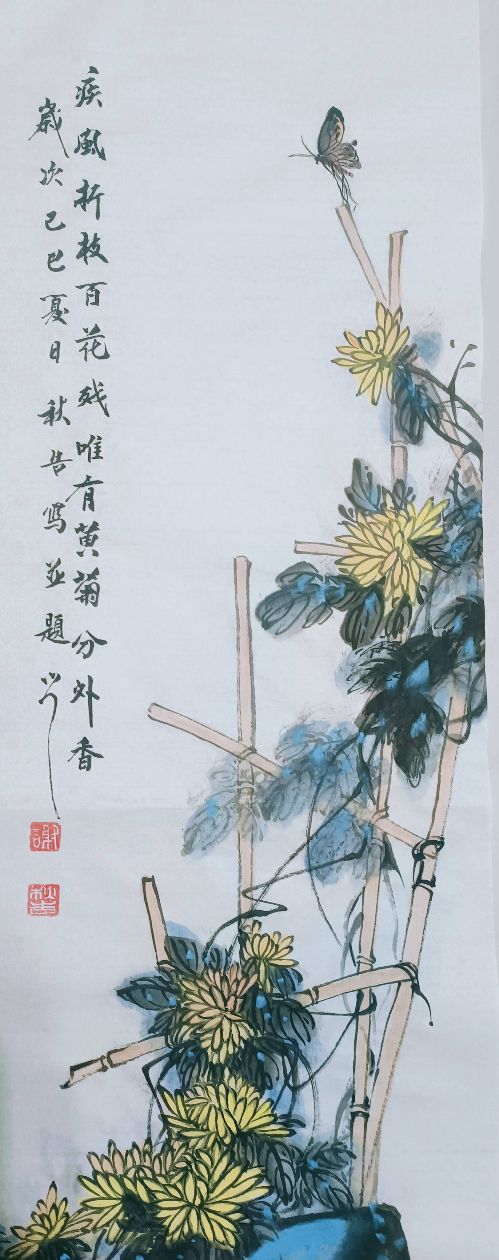 疾風折枝百花残唯有黄菊分外香
歲次己巳夏日秋告写並題
謝